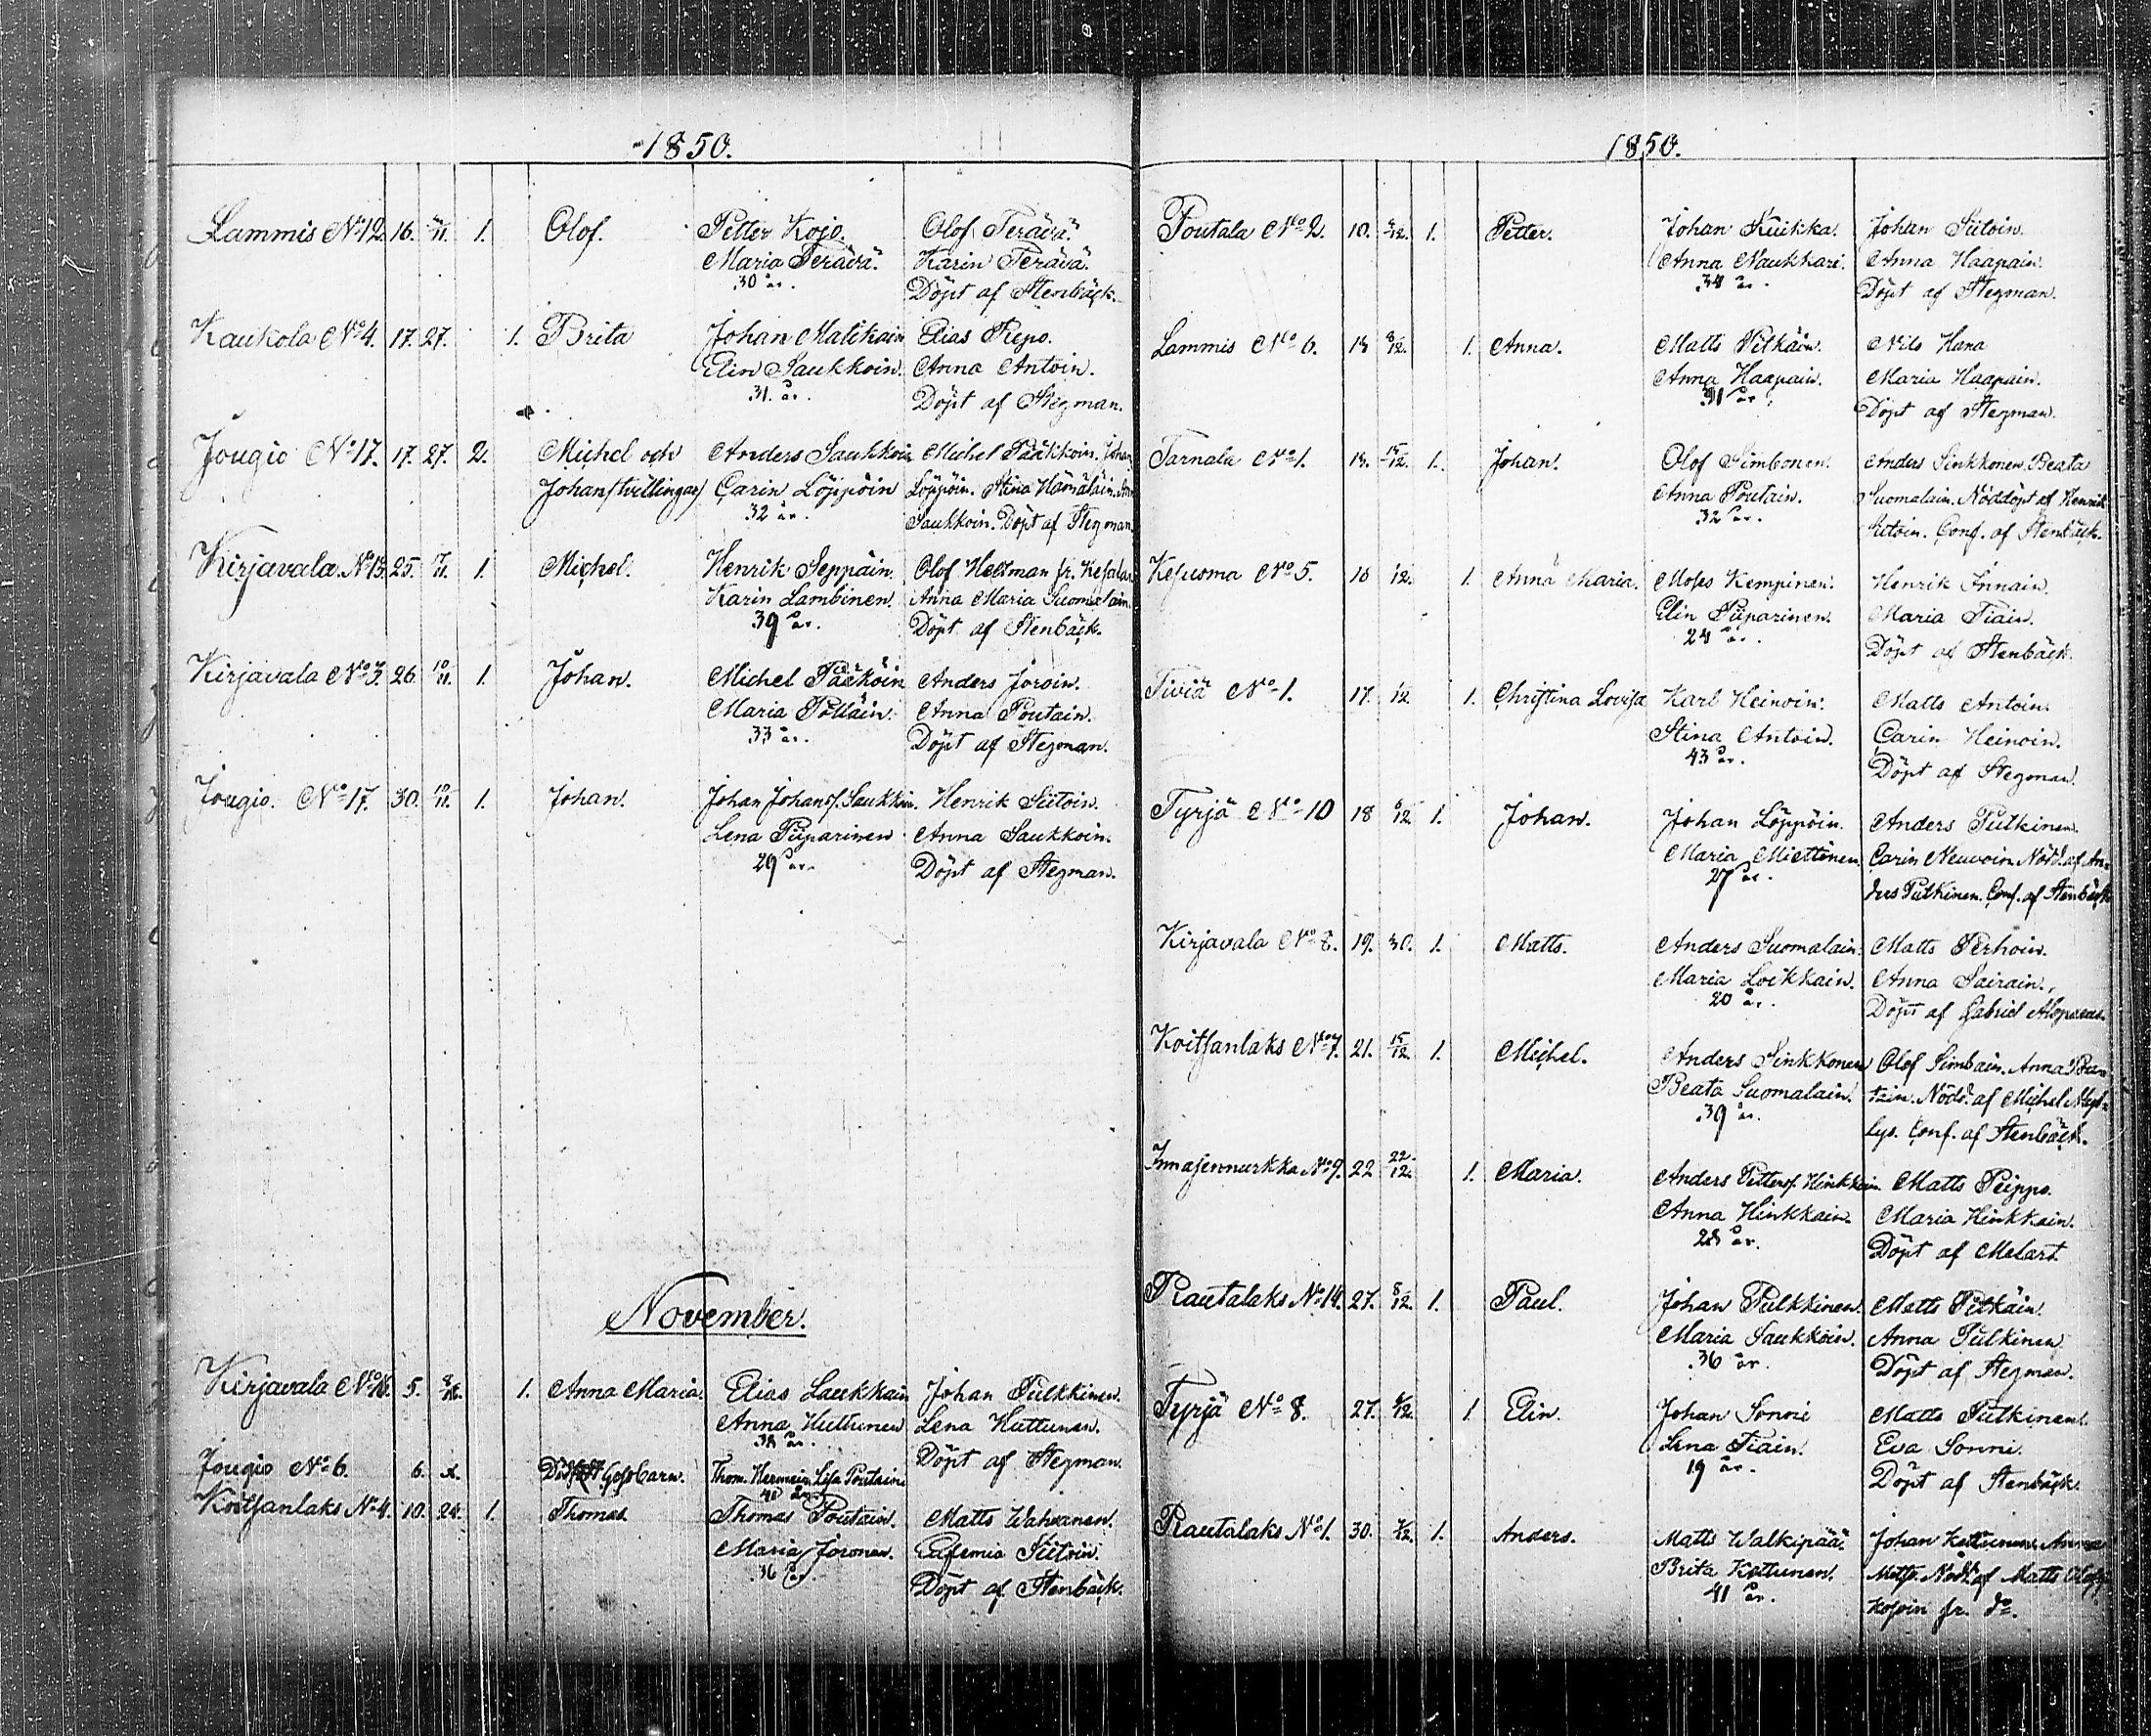 1850.
Lammis No 12. 16. /11. 1. Olof. Petter Kojo. Olof Terävä.
Maria Terävä. Karin Terävä.
30 år. Döpt af Stenbäck.
Kaukola No 4. 17. 27. 1. Brita Johan Matikain Elias Repo.
Elin Saukkoin. Anna Antoin.
31. år. Döpt af Stegman.
Jougio No 17. 17. 27. 2. Michel och Anders Saukkoin Michel Pääkkoin. Johan
Johan (tvillingar) Carin Löppöin Löppöin. Stina Hämäläin.
32 år. Saukkoin. Döpt af Stegman.
Kirjavala No 15. 25. /11. 1. Michel. Henrik Seppäin. Olof Heltman fr.
Karin Lambinen. Anna Maria Suomalain.
39 år. Döpt af Stenbäck.
Kirjavala No 3. 26. 10/11. 1. Johan. Michel Pääköin Anders Joroin.
Maria Pölläin. Anna Poutain.
33 år. Döpt af Stegman.
Jougio. No 17. 30. 10/11. 1. Johan. Johan Johans. Saukkoin. Henrik Siitoin.
Lena Piiparinen Anna Saukkoin.
29 år. Döpt af Stegman.
November.
Kirjavala No 5. 1. Anna Maria. Elias Laukkain Johan Pulkkinen.
Anna Huttunen Lena Huttunen.
38 år. Döpt af Stegman.
Jougio No 6. 6. Thom. Lisa Poutain
Koitsanlaks No 4. 10. 24. 1. Thomas Thomas Poutain. Matts Wahvanen.
Maria Joronen. Eufemia Siitoin.
36 år. Döpt af Stenbäck.
1850.
Poutala No 2. 10. /12. 1. Petter. Johan Kuikka. Johan Siitoin.
Anna Naukkari. Anna Haapain.
34 år. Döpt af Stegman.
Lammis No 6. 8/12. 1. Anna. Matts Pitkäin. Nils Hana
Anna Haapain. Maria Haapain.
31 år. Döpt af Stegman.
Tarnala No 1. 15/12. 1. Johan. Olof Simbonen. Anders Sinkkonen. Beata
Anna Poutain. Suomalain. Nöddöpt af Henrik
32 år. Conf. af Stenbäck.
Kesusoma No 5. 16 /12. 1. Anna Maria. Moses Kempinen. Henrik Innain.
Elin Piiparinen. Maria Tiain.
24 år. Döpt af Stenbäck.
Tiviä No 1. 17. /12. 1. Christina Lovisa Karl Heinoin. Matts Antoin.
Stina Antoin. Carin Heinoin.
43 år. Döpt af Stegman.
Tyrjä No 10 18 /12 1. Johan. Johan Löppöin. Anders Pulkinen.
Maria Miettinen. Carin Neuvoin. Nödd. af An-
27 år. ders Pulkinen. Conf. af Stenbäck
Kirjavala No 8. 19. 30. 1. Matts. Anders Suomalain. Matts Perhoin.
Maria Loikkain. Anna Sairain.
20 år. Döpt af Gabriel
Koitsanlaks No 7. 21. 15/12. 1. Michel. Anders Sinkkonen Olof Simbain. Anna Pou-
Beata Suomalain. tain. Nödd. af Michel
39 år. Conf. af Stenbäck.
Innasennurkka No 9. 22 22/12. 1. Maria. Anders Petters. Hinkkain. Matts Peippo.
Anna Hinkkain. Maria Hinkkain.
28 år. Döpt af Melart
Rautalaks No 14. 27. 8/12. 1. Paul. Johan Pulkkinen. Matts Pitkäin.
Maria Saukkoin. Anna Pulkinen
36 år. Döpt af Stegman.
Tyrjä No 8. 27. /12. 1 Elin. Johan Sonni Matts Pulkinen.
Lena Tiain. Eva Sonni.
19 år. Döpt af Stenbäck.
Rautalaks No 1. 30. /12. 1. Anders. Matts Walkipää. Johan Kettunen
Brita Kettunen. Nödd. af Matts
41 år. fr. do.